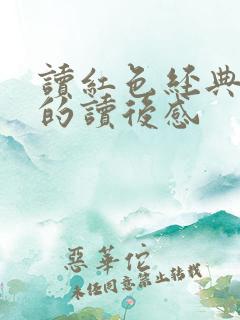 讀紅色經典
的讀後感
惡華佗
未经同意禁止转载